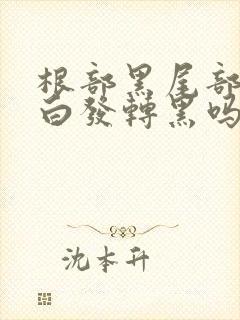 根部黑尾部
白發轉黑吗
沈本升